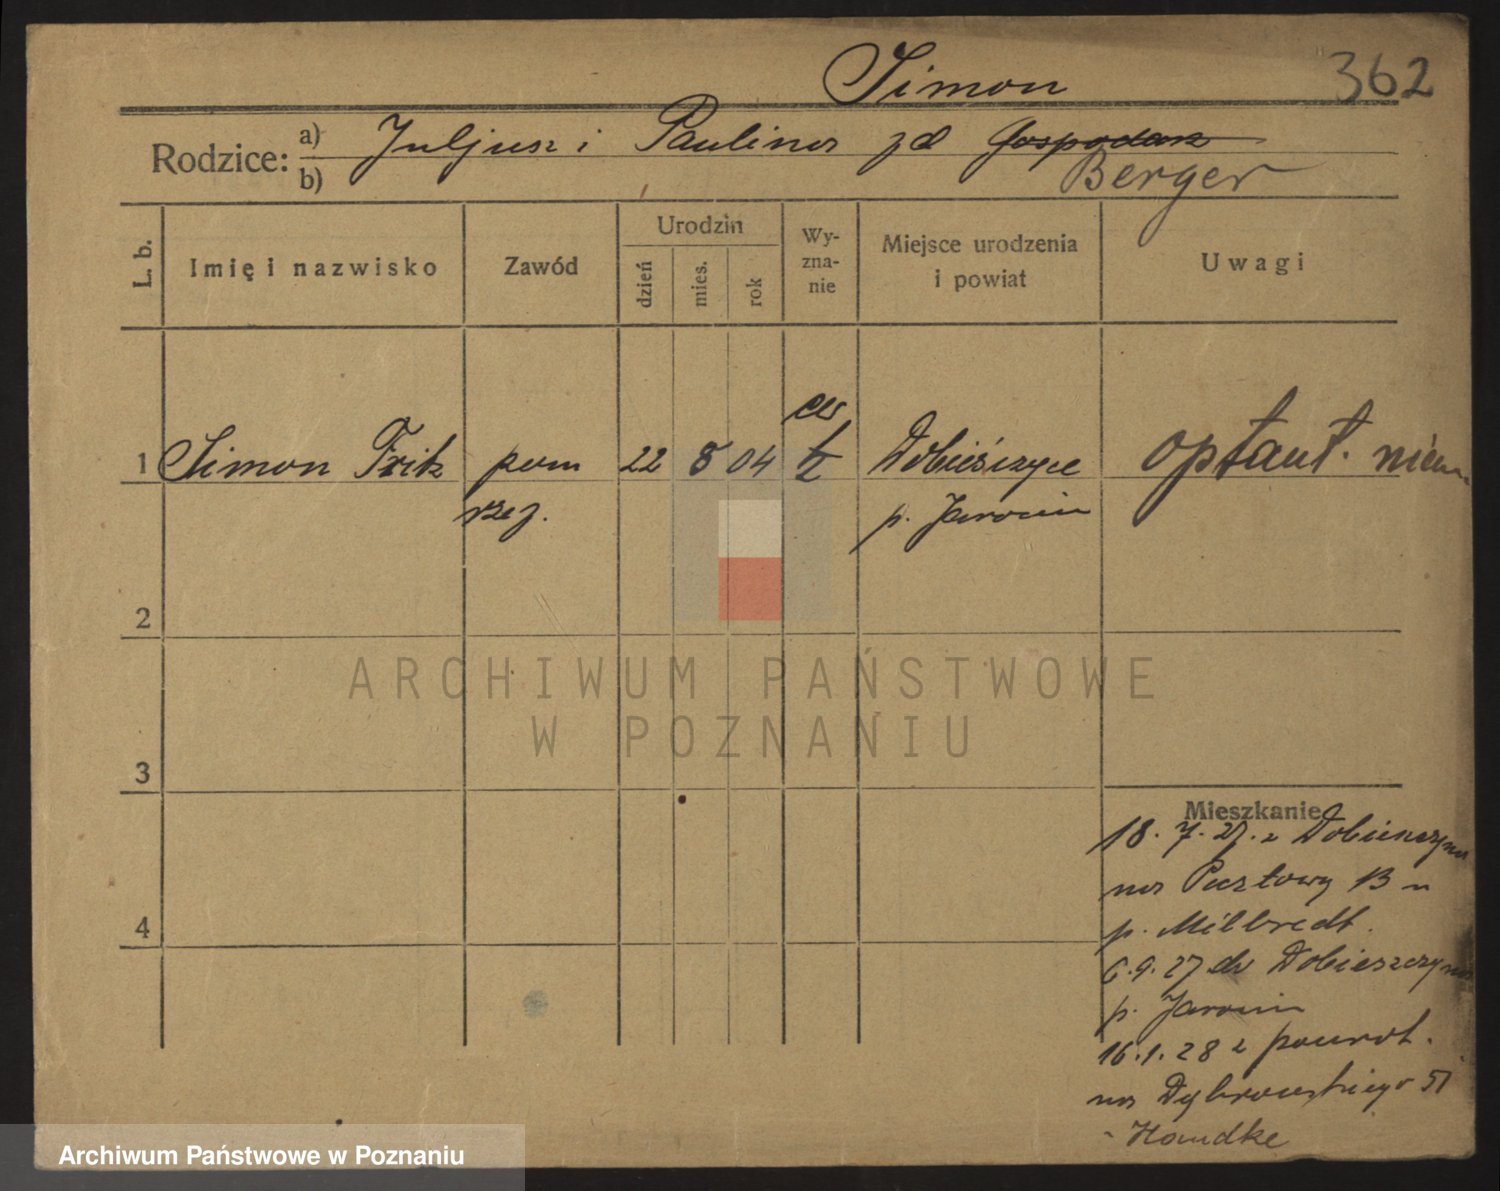 Simon
362
Rodzice:
a) Juljusz i Paulina zd Gospodarz
b) Berger
L. b.
Imię i nazwisko
Zawód
Urodzin
dzień
mies.
rok
Wy-
zna-
nie
Miejsce urodzenia
i powiat
Uwagi
ew
1 Simon Fritz pom 22 8 04 Dobieszczyce optant. niem.
rzeź. p. Jarocin
2
ARCHIWUM PAŃSTWOWE
W POZNANIU
3
Mieszkanie
18. 7. 27. z Dobieszczyna
na Pocztowy 13 u
p. Milbredt.
6.9.27 do Dobieszczyna
p. Jarocin
4
16.1.28 z powrot.
na Dąbrowskiego 51
- Handke
Archiwum Państwowe w Poznaniu